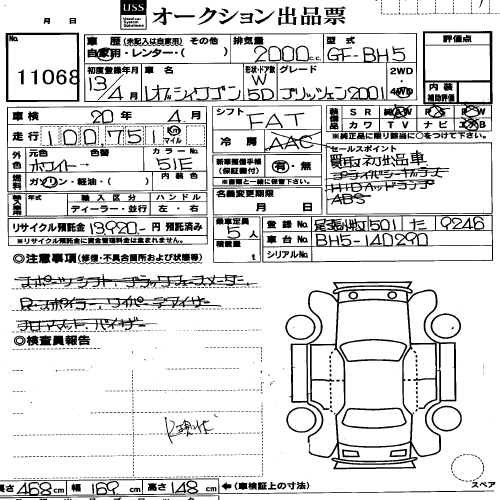 USS オークション出品票
月 日
No. 11068
車歴 (未記入は自家用) その他
自家用・レンター・( )
排気量 2000 c.c.
型式 GF-BH5
評価点
初度登録年月 13/4月
車名 レガシィワゴン
形状・ドア数 W 5D
グレード ブリッツェン2001
2WD・4WD
内装補助評価
車検 20年 4月
シフト FAT
装備品 SR AW PS PW
カワ TV ナビ エアB
*純正品に限り該当に○をつけて下さい
走行 100,751 km マイル
冷房 AAC
セールスポイント
買取初出品車
プライバシーガラス
HIDヘッドランプ
ABS
外色 元色 色替 カラーNo.
ホワイト 51E
新車整備手帳(保証書付) 有・無
燃料 ガソリン・軽油・( )
内装色
名義変更期限
月 日
輸入車 年式 輸入区分 ハンドル
ディーラー・並行 左・右
リサイクル預託金 13,920-円 預託済み
*リサイクル預託金に資金管理料金は含まれません。
乗車定員 5人
積載量 t
登録No. 501 た 9248
車台No. BH5-140290
シリアルNo.
◎注意事項 (修復・不具合箇所および状態等)
スポーツシフト、ブラックフェースメーター、
R・スポイラー、ワイパーデアイサー
フロアマット、バイザー
◎検査員報告
長さ 468cm 幅 169cm 高さ 148cm ←(車検証上の寸法)
スペア